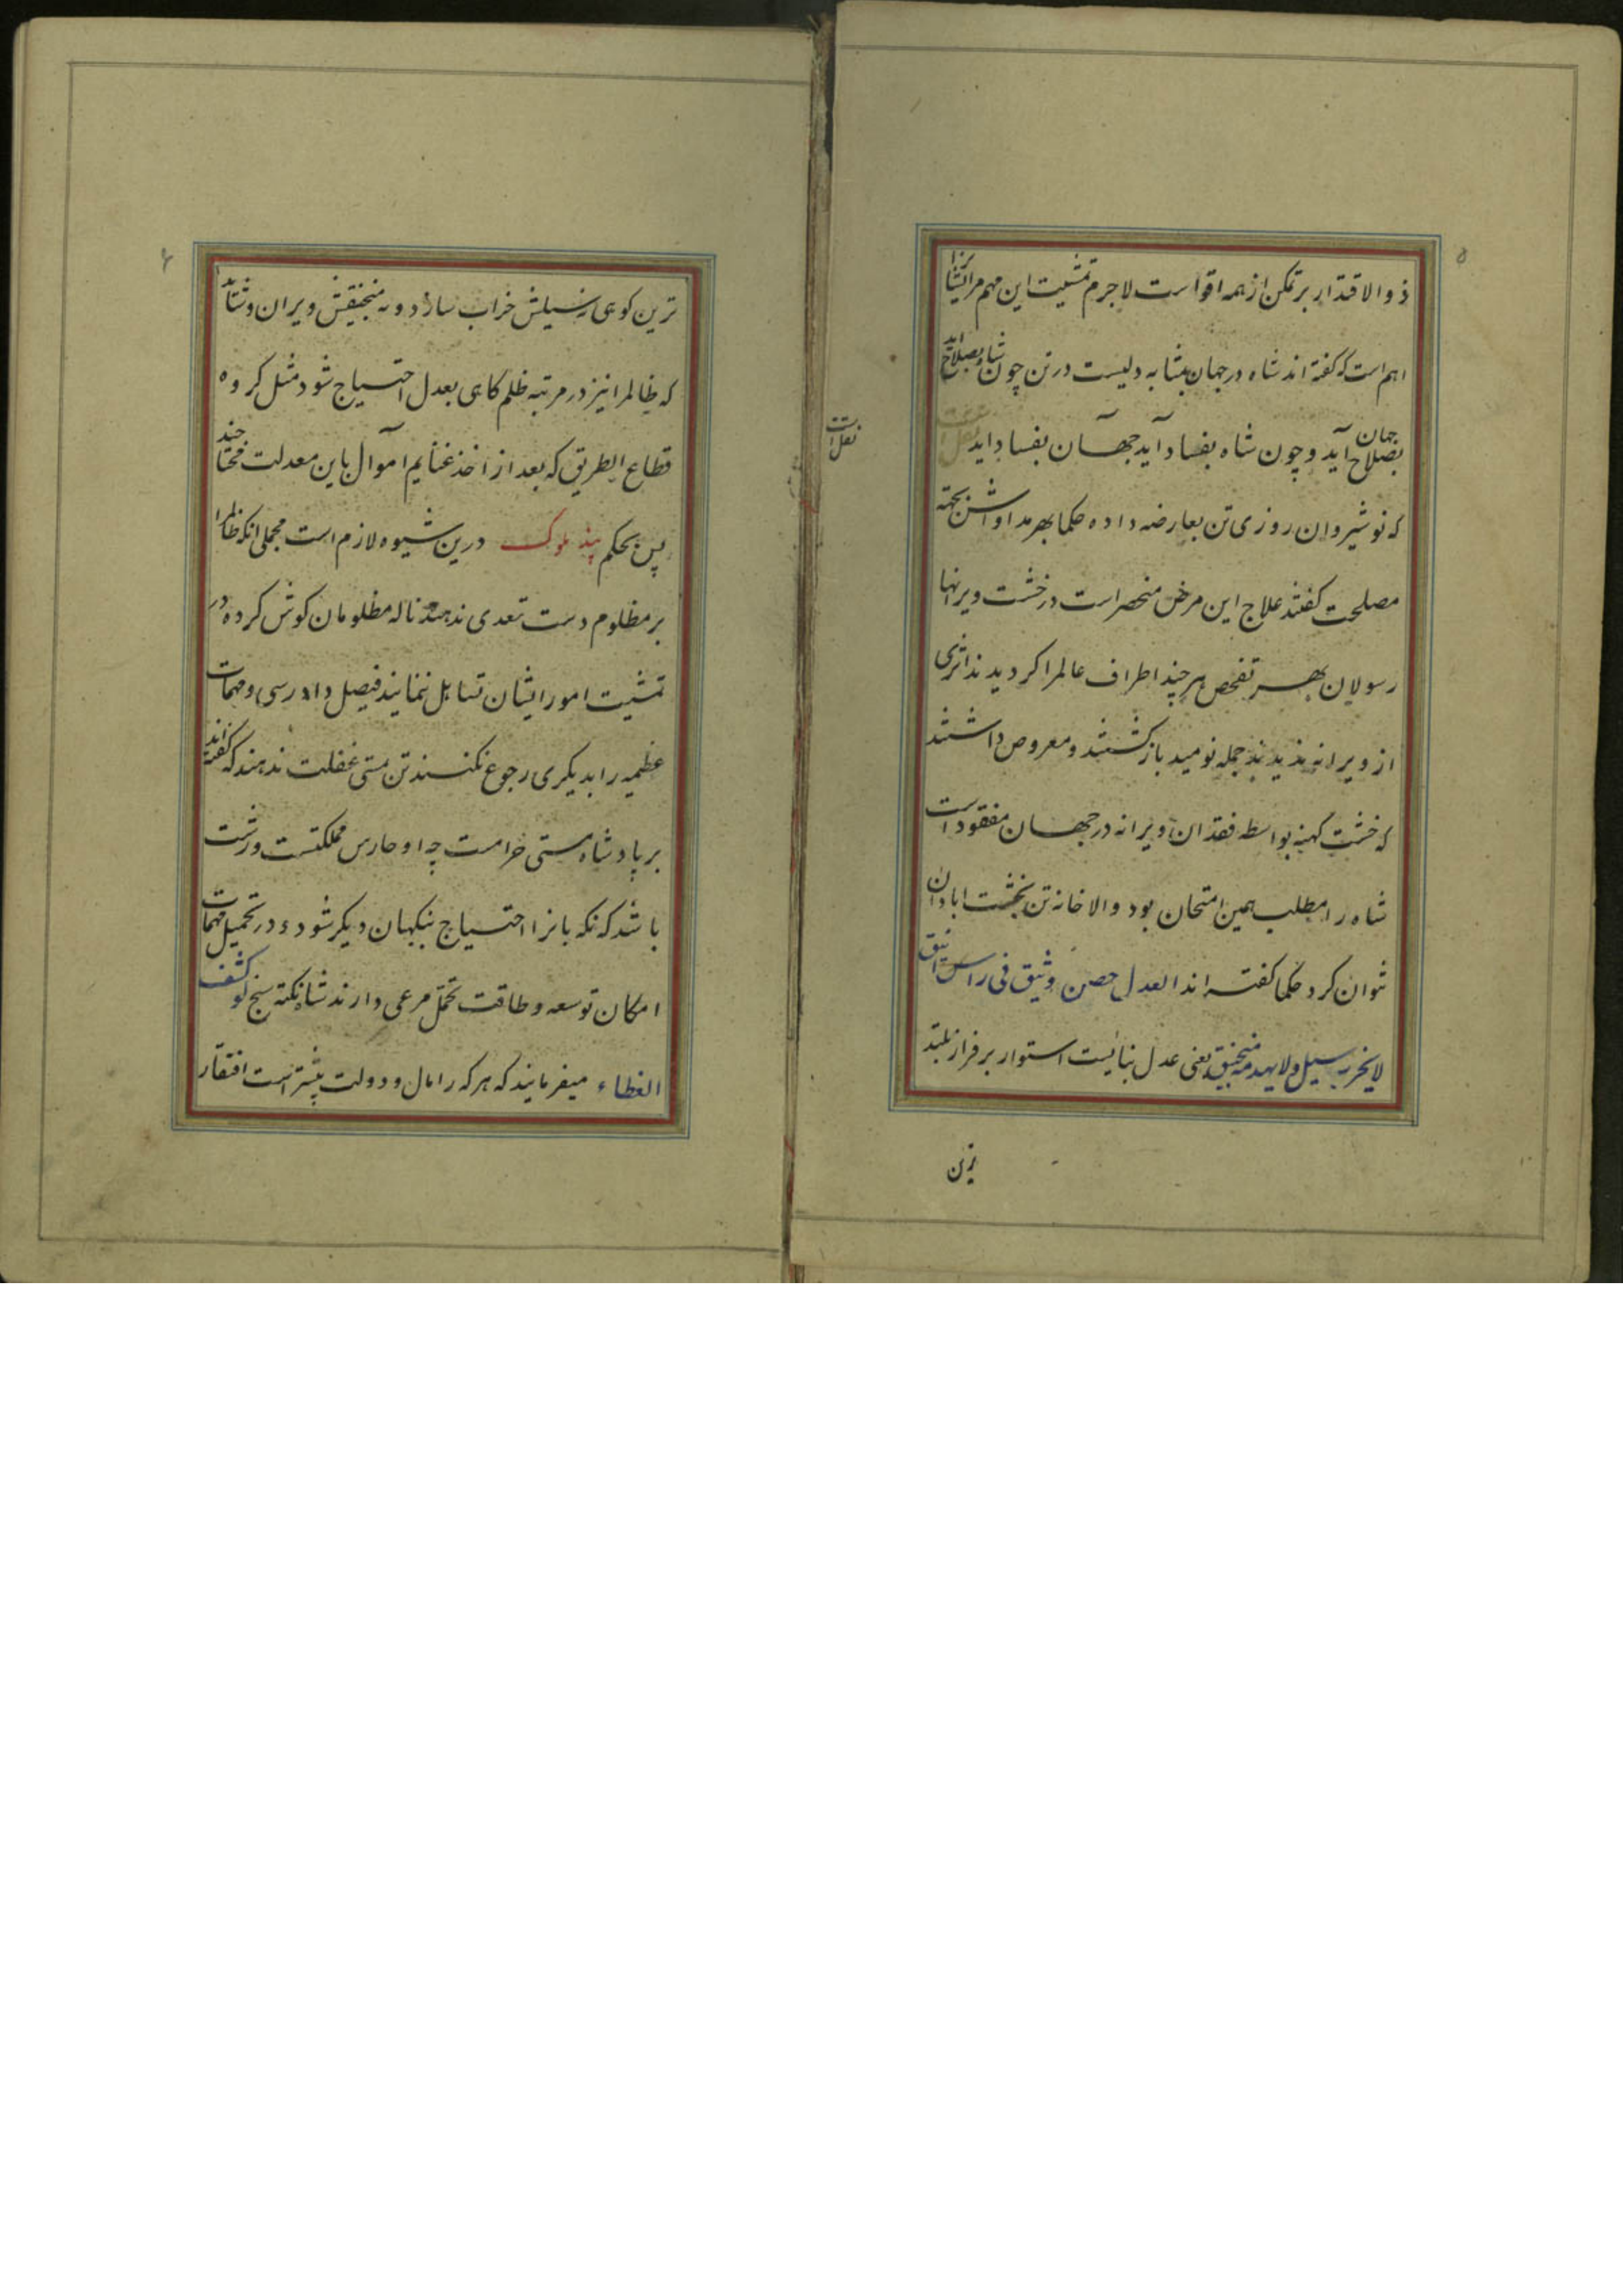 ۵
ذو الاقتدار بر تمکن از همه اقواست لاجرم تمشیت این مهم مر ایشانرا
اهم است که گفته اند شاه در جهان بمثابه دلیست در تن چون شاه بصلاح اید
جهان بصلاح آید و چون شاه بفساد آید جهان بفساد اید
نقل است
که نوشیروان روزی تن بعارضه داده حکما بهر مداواش بجهة
مصلحت کفتند علاج این مرض منحصر است در خشت ویرانها
رسولان بهر تفحص هر چند اطراف عالم را کردیدند اثری
از ویرانه ندیدند جمله نومید باز کشتند و معروض داشتند
که خشت کهنه بواسطه فقدان ویرانه در جهان مفقود است
شاه را مطلب همین امتحان بود والا خانه تن بخشت ابادان
نتوان کرد حکما کفته اند العدل حصن وثیق فی راس انیق
لایخربه سیل ولایهدمه منجنیق یعنی عدل بنائیست استوار بر فراز بلند
ترین
۶
ترین کوهی نه سیلش خراب سازد و نه منجنیقش ویران و شاید
که ظالم را نیز در مرتبه ظلم کاهی بعدل احتیاج شود مثل کروه
قطاع الطریق که بعد از اخذ غنایم اموال باین معدلت محتاجند
پس بحکم پند ملوک درین شیوه لازم است مجملی انکه ظالمرا
بر مظلوم دست تعدی ندهند ناله مظلومان کوش کرده در
تمشیت امور ایشان تساهل ننمایند فیصل دادرسی و مهمات
عظیمه را بدیکری رجوع نکنند تن بمستی غفلت ندهند که کفته اند
بر پادشاه مستی حرامست چه او حارس مملکتست و زشت
باشد که نکهبانرا احتیاج بنکهبان دیکر شود و در تحمیل مهمات
امکان توسعه و طاقت تحمل مرعی دارند شاه نکته سنج لو کشف
الغطاء میفرمایند که هر که را مال و دولت بیشتر است افتقار